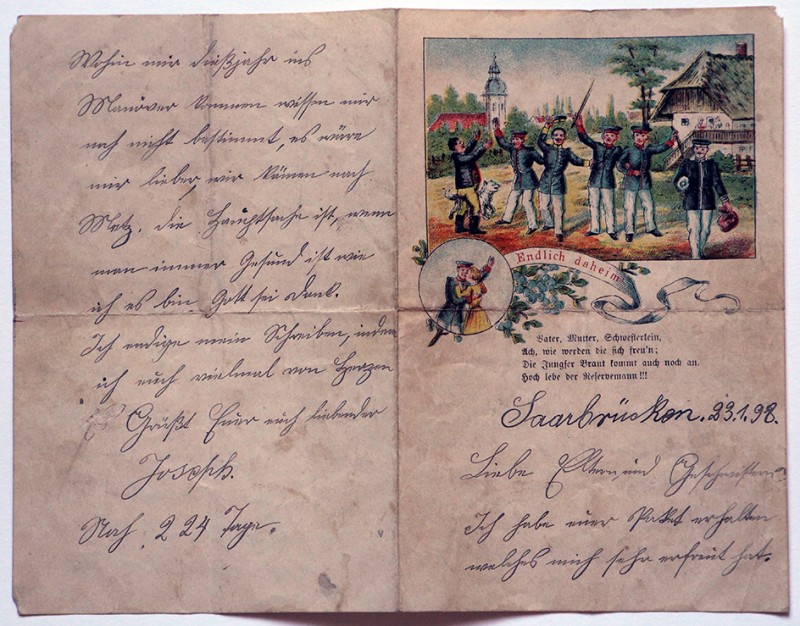 Wohin wir dießjahr ins
Manöver kommen wissen wir
noch nicht bestimmt, es wäre
mir lieber, wir kämen nach
Metz. die Hauptsache ist, wenn
man immer Gesund ist wie
ich es bin Gott sei Dank.
Ich endige mein Schreiben, indem
ich euch vielmal von Herzen
Es Grüßt Euer euch liebender
Joseph.
Noch 224 Tage.
Endlich daheim
Vater, Mutter, Schwesterlein,
Ach, wie werden die sich freu'n;
Die Jungfer Braut kommt auch noch an.
Hoch lebe der Reservemann!!!
Saarbrücken. 23.1.98.
Liebe Eltern und Geschwister
Ich habe euer Paket erhalten
welches mich sehr erfreut hat.